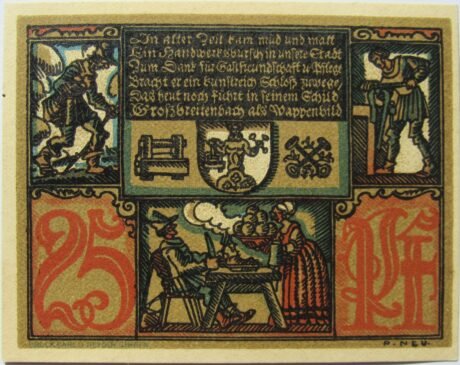 In alter Zeit kam müd und matt
Ein Handwerksbursch in unsre Stadt
Zum Dank für Gastfreundschaft u. Pflege
Bracht er ein kunstreich Schloß zuwege,
Das heut noch führt in seinem Schild
Großbreitenbach als Wappenbild
25 Pf
P. NEU.